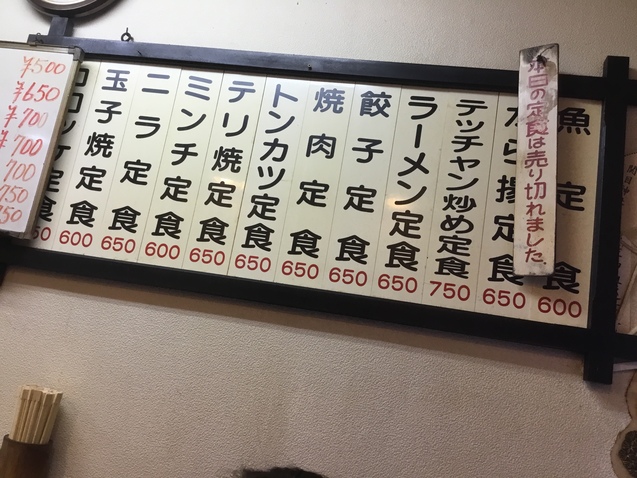 本日の定食は売り切れました.
魚定食
600
から揚定食
650
テッチャン炒め定食
750
ラーメン定食
650
餃子定食
650
焼肉定食
650
トンカツ定食
650
テリ焼定食
650
ミンチ定食
600
ニラ定食
650
玉子焼定食
600
コロッケ定食
50
¥500
¥650
¥700
¥700
700
750